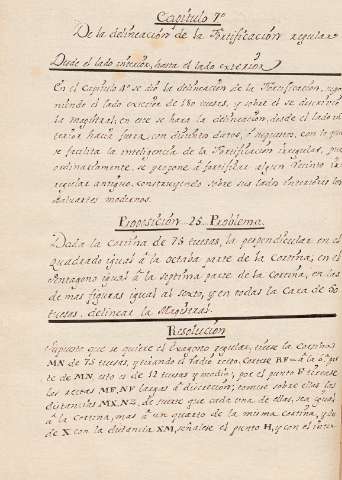 Capítulo 7º
De la delineación de la Fortificación regular
Desde el lado interior, hasta el lado exterior
En el Capítulo 4º se dió la delineación de la Fortificación, supo
niendo el lado exterior de 180 tuesas, y sobre el se
la magistral; en ese se hara la delineación, desde el lado in
terior hacia fuera, con distintos datos, ó supuestos, con lo que
se facilita la inteligencia de la Fortificación irregular, pues
ordinariamente se propone á fortificar algun Recinto ir
regular antiguo, construyendo sobre sus lados interiores los
Baluartes modernos.
Proposición 25. Problema.
Dada la Cortina de 75 tuesas, la perpendicular en el
Quadrado igual á la octaba parte de la Cortina, en el
Pentagono igual á la septima parte de la Cortina, en las
de mas figuras igual al sexto, y en todas la Cara de 50
tuesas, delinear la Magistral.
Resolución
Supuesto que se quiere el Exagono regular, tiene la Cortina
MN de 75 tuesas, y tirando el Radio recto, Cortese RF = á la 6ª par
te de MN, esto es de 12 tuesas y media; por el punto F tirense
las rectas MF, NF largas á discreción; tomese sobre ellas las
distancias MX, NZ, de suerte que cada una de ellas, sea igual
á la Cortina, mas á un quarto de la misma Cortina, y de
de X con la distancia XM, señalese el punto H, y con el inter